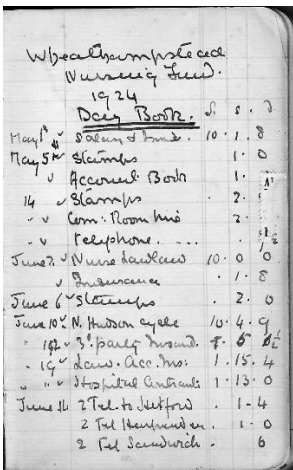 Wheathampstead
Nursing Fund.
1924
Day Book. £. s. d
May 1st " Salary & Insce. 10 . 1 . 8
May 5th " Stamps 1 . 0
" Account Book 1 .
14 " Stamps . 2 .
" " Com: Room hire 2 .
" " telephone. . . . 1½
June 2 " Nurse 10 . 0 0
" Insurance . 1 . 8
June 6 " Stamps . 2 . 0
June 10th " N. Hudson cycle 10 . 4 . 9
" 3d party Insurd.
" 19 " Law. Acc. Ins: 1 . 15 . 4
" " Hospital 1 . 13 . 0
June 14 2 Tel to Hertford . 1 - 4
2 Tel Harpenden . 1 . 0
2 Tel Sandwich . 6